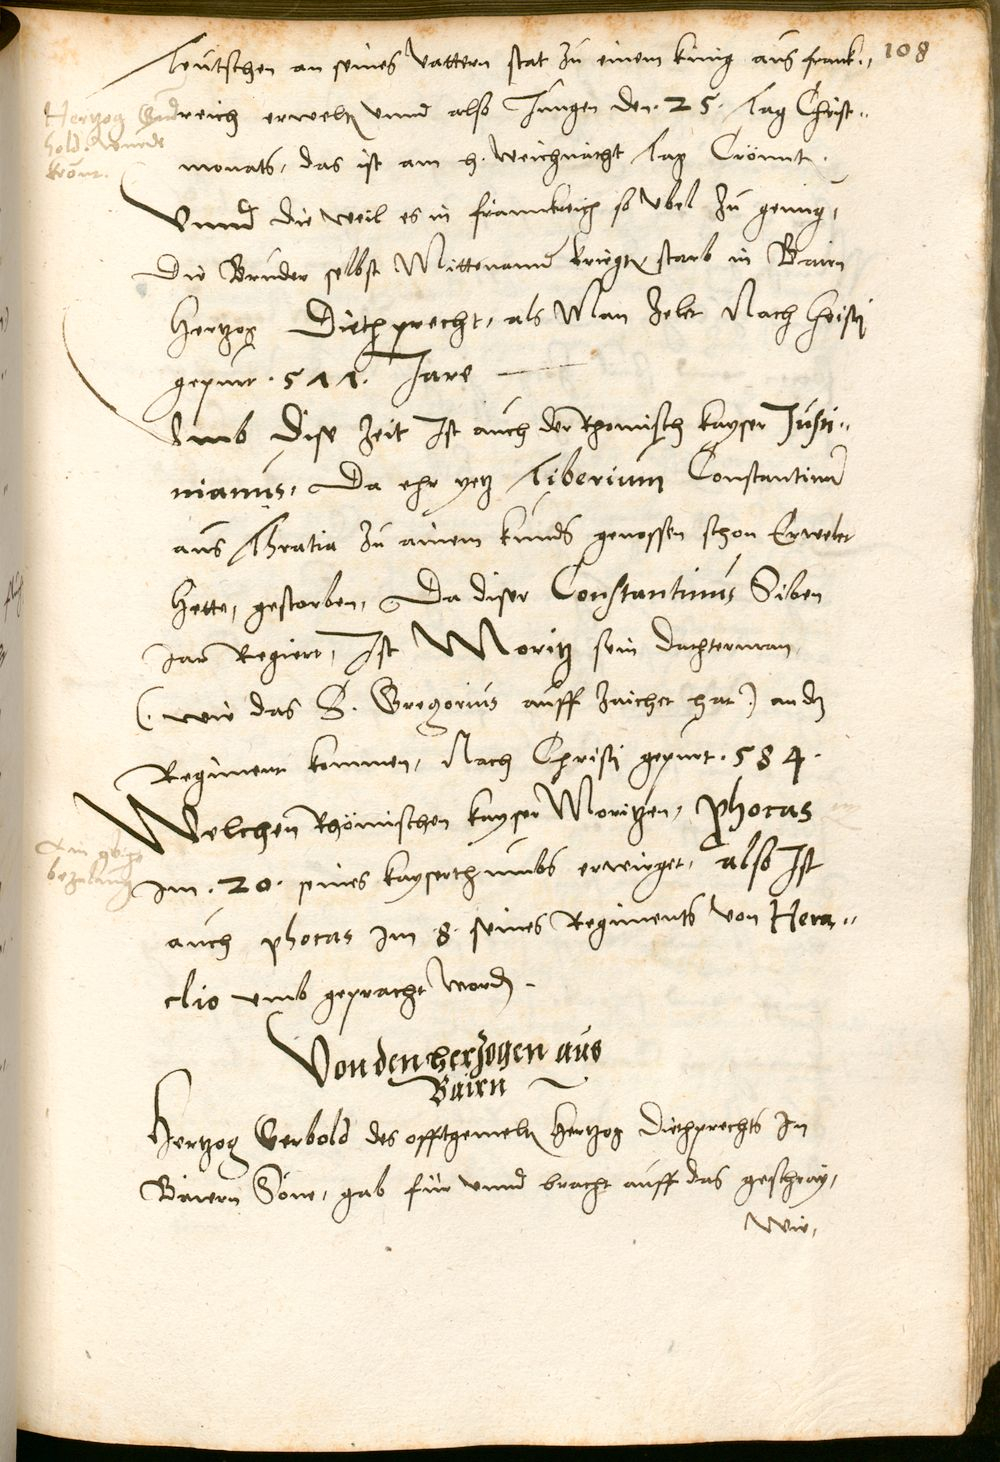 108
Teutschen an seines vattern stat zu einem künig aus frank-,
reich erwelt vnnd also Jungen den .25. Tag Christ-
monats, das ist am h. weichnacht Tag Crönnt.
Vnnd die weil es in frannkreich so vbel zu gieng,
die Brüder selbst Mittenannd kriegten starb in Bairn
Hertzog Diethprecht, als Man zelet Nach Christi
gepurt .511. Jare
Vmb dise zeit Ist auch der Rhomisch kayser Justi-
nianus, Da ehr yetz Tiberium Constantinum
aus Thratia zu ainem genossen schon Erwelet
hette, gestorben, Da diser Constantinus Siben
Jar Regiert, Ist Moritz sein dochterman,
(. wie das S. Gregorius auff zaichet hat.) an dz
Regiment kommen, Nach Christi gepurt .584.
Welchen Rhömischen kayser Moritzen, Phocas
im .20. seines kayserthumbs erwirget, also Ist
auch phocas im .8. seines Regiments von Hera-
clio vmb gepracht word.
Von den herzogen aus
Bairn
Hertzog Gerbold des offtgemelten Hertzog Diethprechts In
Baiern Sone, gab für vnnd bracht auff das geschray,
Wie,
Hertzog
hold. wurde
krönt.